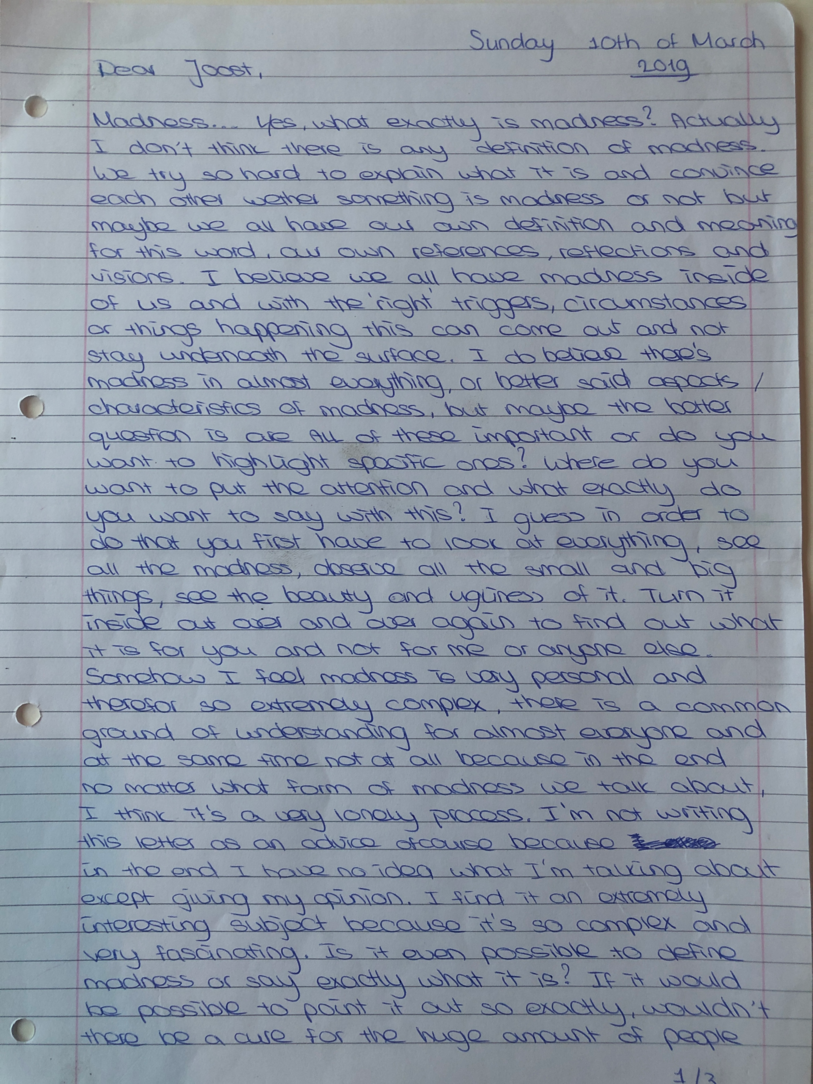 Sunday 10th of March
2019
Dear Joost,
Madness... Yes, what exactly is madness? Actually
I don't think there is any definition of madness.
We try so hard to explain what it is and convince
each other wether something is madness or not but
maybe we all have our own definition and meaning
for this word, our own references, reflections and
visions. I believe we all have madness inside
of us and with the 'right' triggers, circumstances
or things happening this can come out and not
stay underneath the surface. I do believe there's
madness in almost everything, or better said aspects /
characteristics of madness, but maybe the better
question is are All of these important or do you
want to highlight specific ones? Where do you
want to put the attention and what exactly do
you want to say with this? I guess in order to
do that you first have to look at everything, see
all the madness, observe all the small and big
things, see the beauty and ugliness of it. Turn it
inside out over and over again to find out what
it is for you and not for me or anyone else.
Somehow I feel madness is very personal and
therefor so extremely complex, there is a common
ground of understanding for almost everyone and
at the same time not at all because in the end
no matter what form of madness we talk about,
I think it's a very lonely process. I'm not writing
this letter as an advice ofcourse because
in the end I have no idea what I'm talking about
except giving my opinion. I find it an extremely
interesting subject because it's so complex and
very fascinating. Is it even possible to define
madness or say exactly what it is? If it would
be possible to point it out so exactly, wouldn't
there be a cure for the huge amount of people